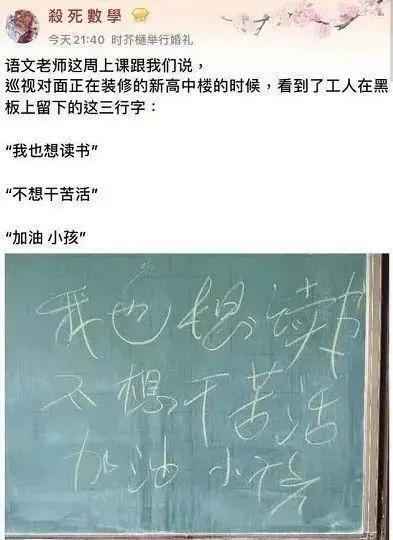 殺死數學
今天21:40 时芥樾举行婚礼
语文老师这周上课跟我们说，
巡视对面正在装修的新高中楼的时候，看到了工人在黑
板上留下的这三行字：
“我也想读书”
“不想干苦活”
“加油 小孩”
我也想读书
不想干苦活
加油 小孩